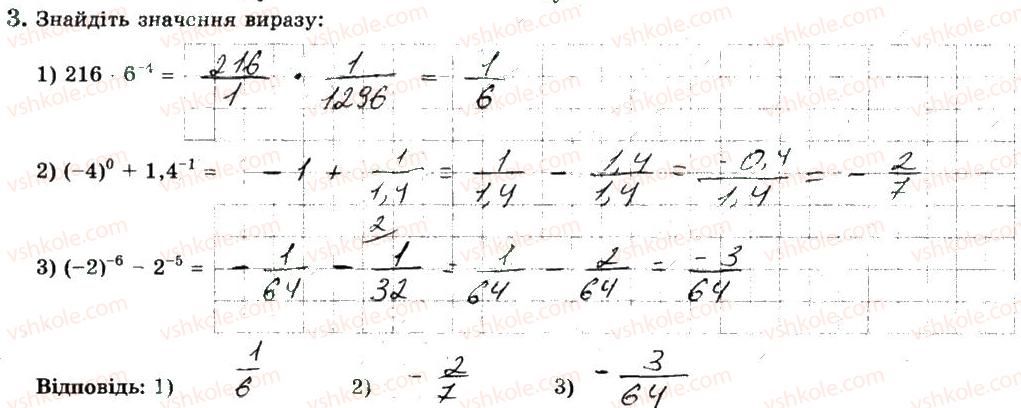 3. Знайдіть значення виразу:
1) 216 · 6⁻⁴ = 216/1 · 1/1296 = 1/6
2) (−4)⁰ + 1,4⁻¹ = − 1 + 1/1,4 = 1/1,4 − 1,4/1,4 = −0,4/1,4 = − 2/7
3) (−2)⁻⁶ − 2⁻⁵ = − 1/64 − 1/32 ² = 1/64 − 2/64 = −3/64
Відповідь: 1) 1/6 2) − 2/7 3) − 3/64
vshkole.com